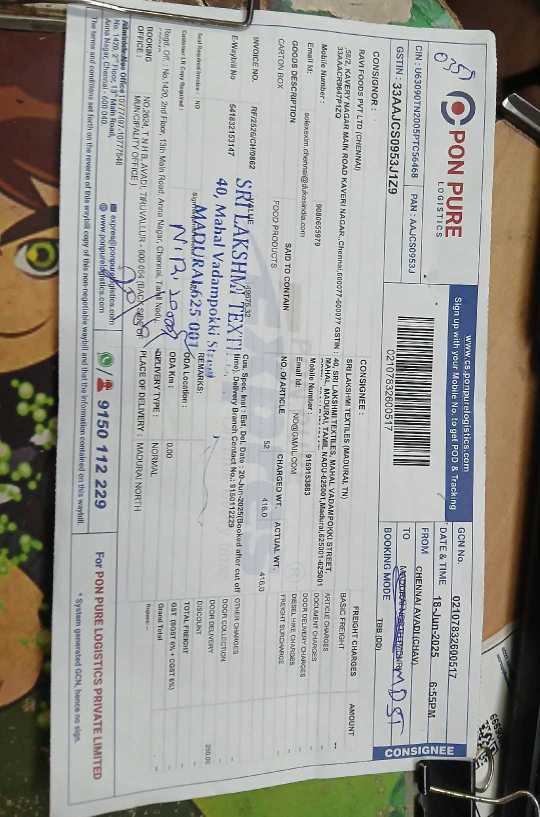 0355
PON PURE
LOGISTICS
www.cs.ponpurelogistics.com
Sign up with your Mobile No. to get POD & Tracking
CIN : U63090TN2005PTC56468 PAN : AAJCS0953J
GSTIN : 33AAJCS0953J1Z9
02107832600517
GCN No. 02107832600517
DATE & TIME 18-Jun-2025 6:55PM
FROM CHENNAI AVADI(CHAV)
TO
MDST
BOOKING MODE TBB (DD)
CONSIGNEE
CONSIGNOR :
RAW FOODS PVT LTD (CHENNAI)
Mobile Number : 9080655979
Email Id:
GOODS DESCRIPTION SAID TO CONTAIN
CARTON BOX FOOD PRODUCTS
CONSIGNEE :
SRI LAKSHMI TEXTILES (MADURAI, TN)
40, SRI LAKSHMI TEXTILES, MAHAL VADAMPOKKI STREET,
MAHAL, MADURAI, TAMIL NADU-625001,Madurai,625001-625001
Mobile Number : 9159153883
Email Id:
NO. OF ARTICLE CHARGED WT. ACTUAL WT.
52 416.0 416.0
FREIGHT CHARGES AMOUNT
BASIC FREIGHT
ARTICLE CHARGES
DOCUMENT CHARGES
DOOR DELIVERY CHARGES
DIESEL HIKE CHARGES
FREIGHT SURCHARGE
OTHER CHARGES
DOOR COLLECTION
DOOR DELIVERY
DISCOUNT
TOTAL FREIGHT
GST (SGST 6% + CGST 6%)
Grand Total
Rupees:--
INVOICE NO. RF/2526/CH/0862
E-Waybill No 541832153147
SRI LAKSHMI TEXT
40, Mahal Vadampokki Street
MADURAI-625 001
Cus. Spec. Inst : Est. Del. Date : 20-Jun-2025(Booked after cut off
time), Delivery Branch Contact No.: 9150112229
REMARKS:
ODA Location :
ODA Km : 0.00
DELIVERY TYPE : NORMAL
PLACE OF DELIVERY : MADURAI NORTH
Customer LR Copy Required :
Regd. Off. : No.1420, 2nd Floor, 13th Main Road, Anna Nagar, Chennai, Tamil Nadu
BOOKING
OFFICE :
MUNCIPALITY OFFICE )
No. 1420, 2nd Floor, 13th Main Road,
Anna Nagar, Chennai - 600 040.
www.ponpurelogistics.com
9150 112 229
For PON PURE LOGISTICS PRIVATE LIMITED
The terms and conditions set forth on the reverse of this waybill copy of this non-negotiable waybill and that the information contained on this waybill.
* System generated GCN, hence no sign.